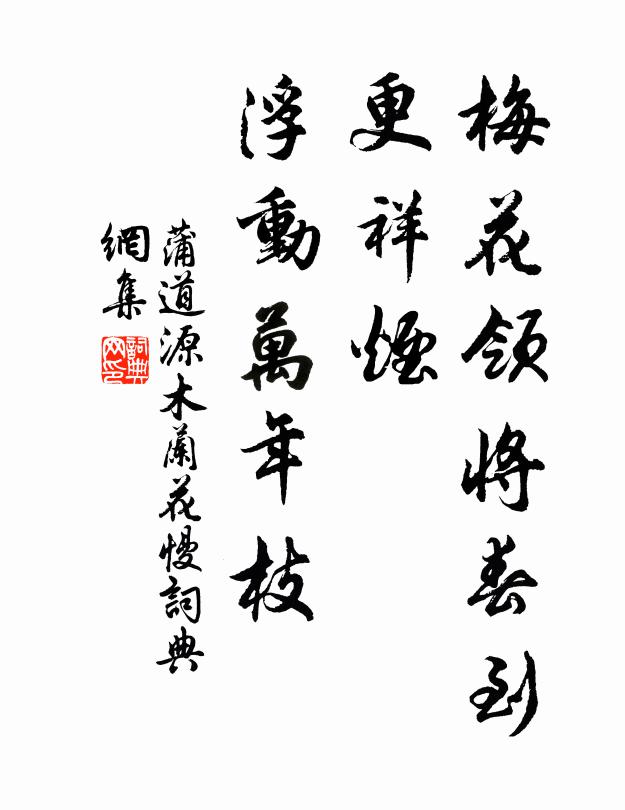 梅花領將春到
更祥煙
浮動萬年枝
蒲道源木蘭花慢詞典
網集
詞典网印